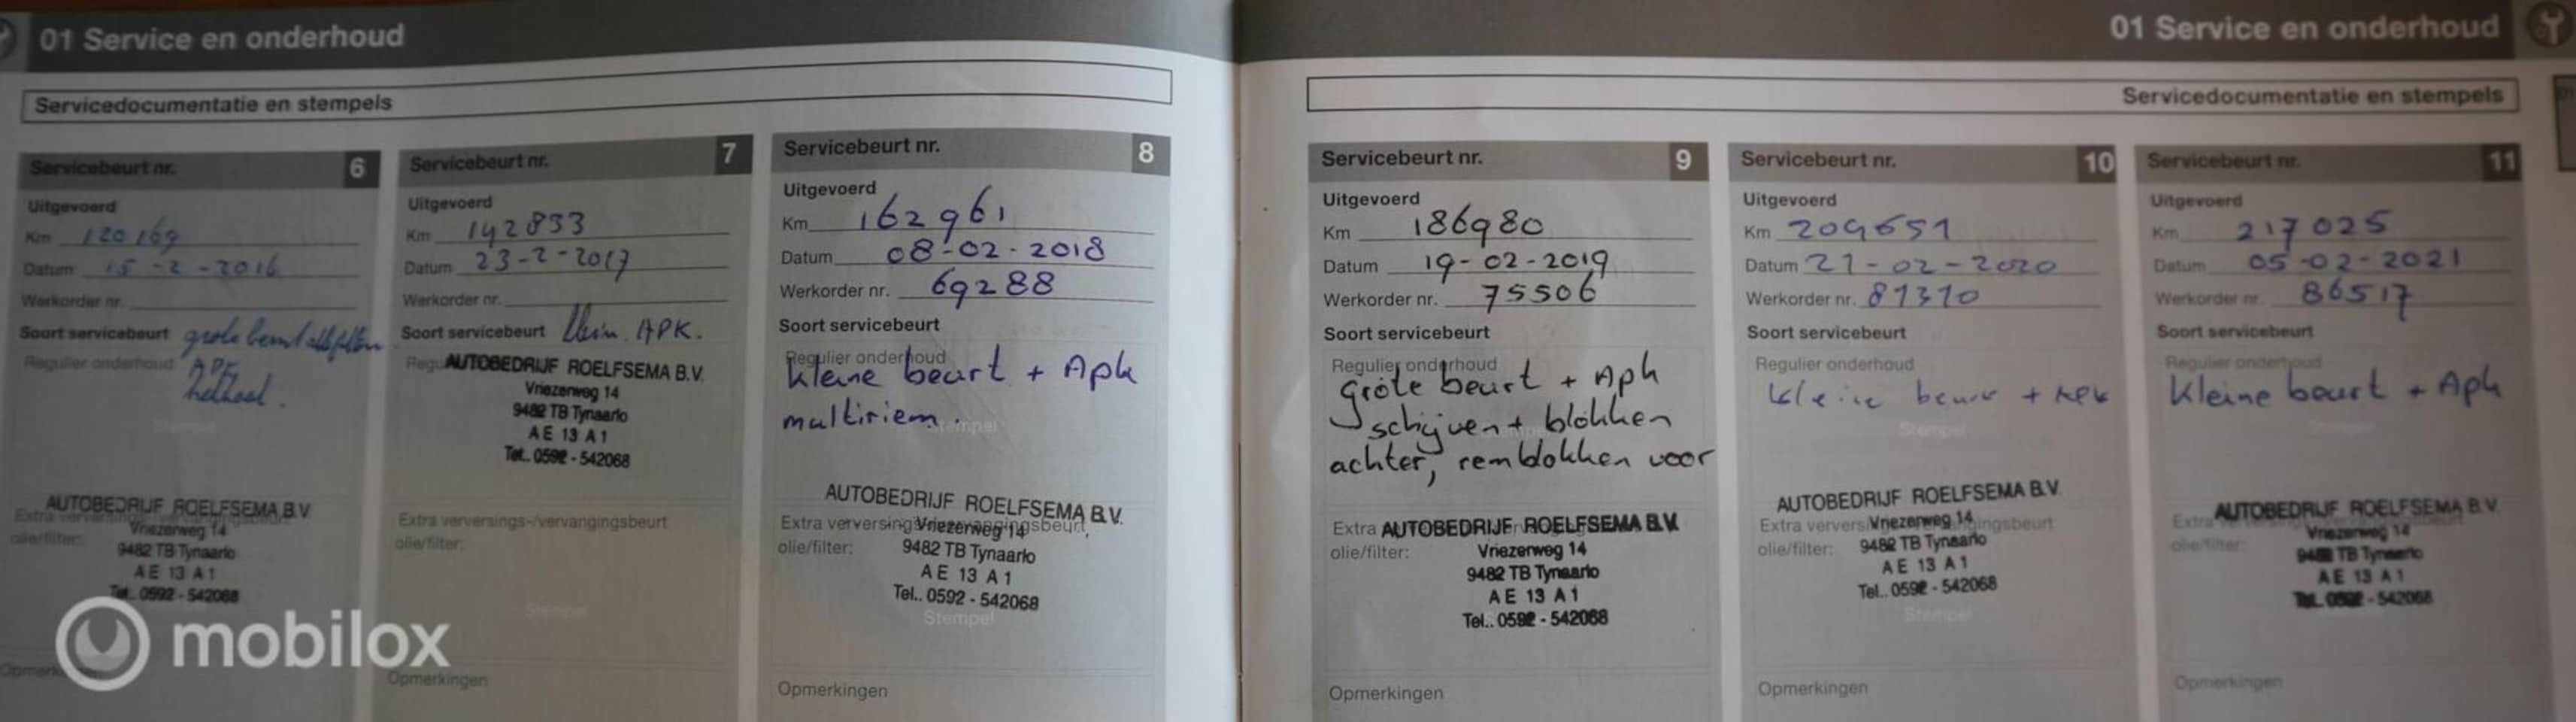 01 Service en onderhoud
Servicedocumentatie en stempels
Servicebeurt nr. 6
Uitgevoerd
Km 120169
Datum 15-2-2016
Werkorder nr.
Soort servicebeurt grote beurt
Regulier onderhoud
Stempel
AUTOBEDRIJF ROELFSEMA B.V.
Extra verversings-/vervangingsbeurt
Vriezerweg 14
olie/filter:
9482 TB Tynaarlo
AE 13 A1
Tel.. 0592 - 542068
mobilox
Opmerkingen
Servicebeurt nr. 7
Uitgevoerd
Km 142833
Datum 23-2-2017
Werkorder nr.
Soort servicebeurt klein. APK.
AUTOBEDRIJF ROELFSEMA B.V.
Vriezerweg 14
9482 TB Tynaarlo
AE 13 A1
Tel.. 0592 - 542068
Extra verversings-/vervangingsbeurt
olie/filter:
Stempel
Opmerkingen
Servicebeurt nr. 8
Uitgevoerd
Km 162961
Datum 08-02-2018
Werkorder nr. 69288
Soort servicebeurt
Regulier onderhoud
kleine beurt + Apk
multiriem.
Stempel
AUTOBEDRIJF ROELFSEMA B.V.
Extra verversings-/vervangingsbeurt
Vriezerweg 14
olie/filter:
9482 TB Tynaarlo
AE 13 A1
Tel.. 0592 - 542068
Stempel
Opmerkingen
01 Service en onderhoud
Servicedocumentatie en stempels
Servicebeurt nr. 9
Uitgevoerd
Km 186980
Datum 19-02-2019
Werkorder nr. 75506
Soort servicebeurt
Regulier onderhoud
Grote beurt + Apk
schijven + blokken
achter, remblokken voor
Extra
AUTOBEDRIJF ROELFSEMA B.V.
olie/filter:
Vriezerweg 14
9482 TB Tynaarlo
AE 13 A1
Tel.. 0592 - 542068
Opmerkingen
Servicebeurt nr. 10
Uitgevoerd
Km 209651
Datum 21-02-2020
Werkorder nr. 81310
Soort servicebeurt
Regulier onderhoud
kleine beurt + APK
Stempel
AUTOBEDRIJF ROELFSEMA B.V.
Extra verversings-/vervangingsbeurt
Vriezerweg 14
olie/filter:
9482 TB Tynaarlo
AE 13 A1
Tel.. 0592 - 542068
Stempel
Opmerkingen
Servicebeurt nr. 11
Uitgevoerd
Km 217025
Datum 05-02-2021
Werkorder nr. 86517
Soort servicebeurt
Regulier onderhoud
Kleine beurt + Apk
Stempel
AUTOBEDRIJF ROELFSEMA B.V.
Extra
Vriezerweg 14
olie/filter:
9482 TB Tynaarlo
AE 13 A1
Tel.. 0592 - 542068
Opmerkingen